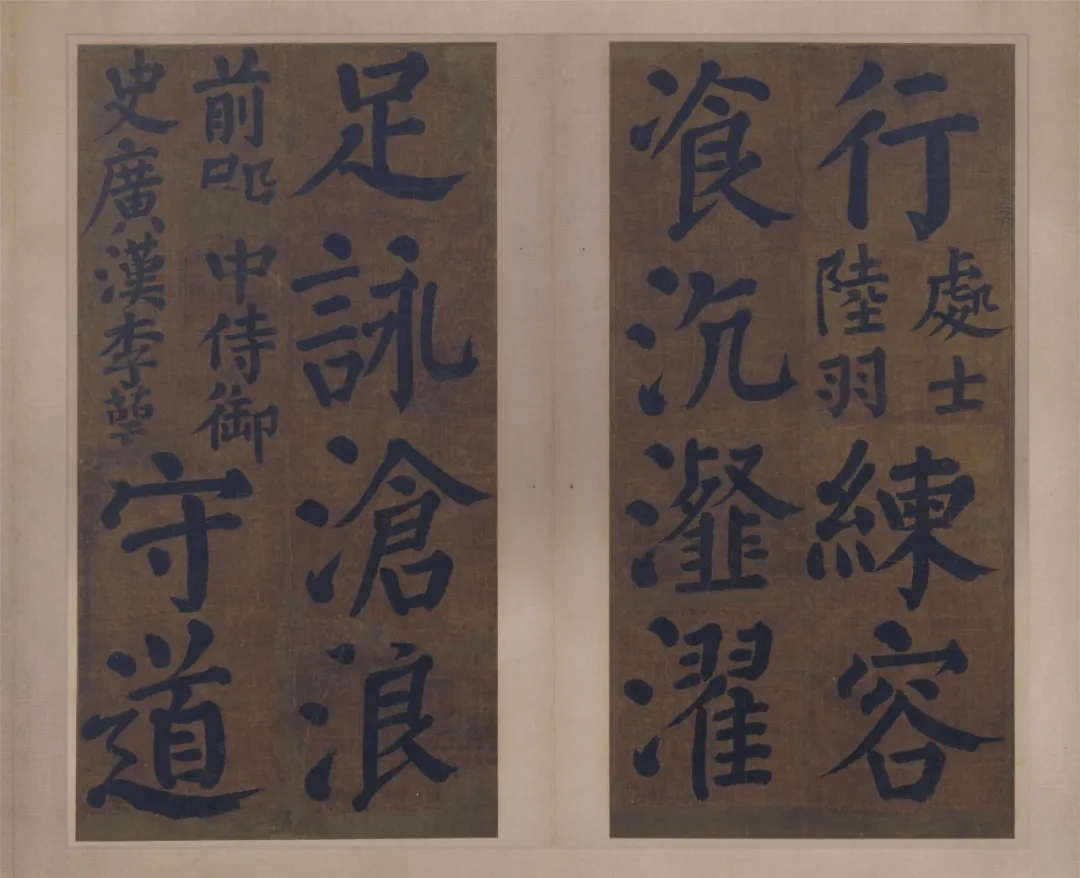 行
處士
陸羽
練容
飡沆瀣濯
足詠滄浪
前 中侍御
史廣漢李萼
守道